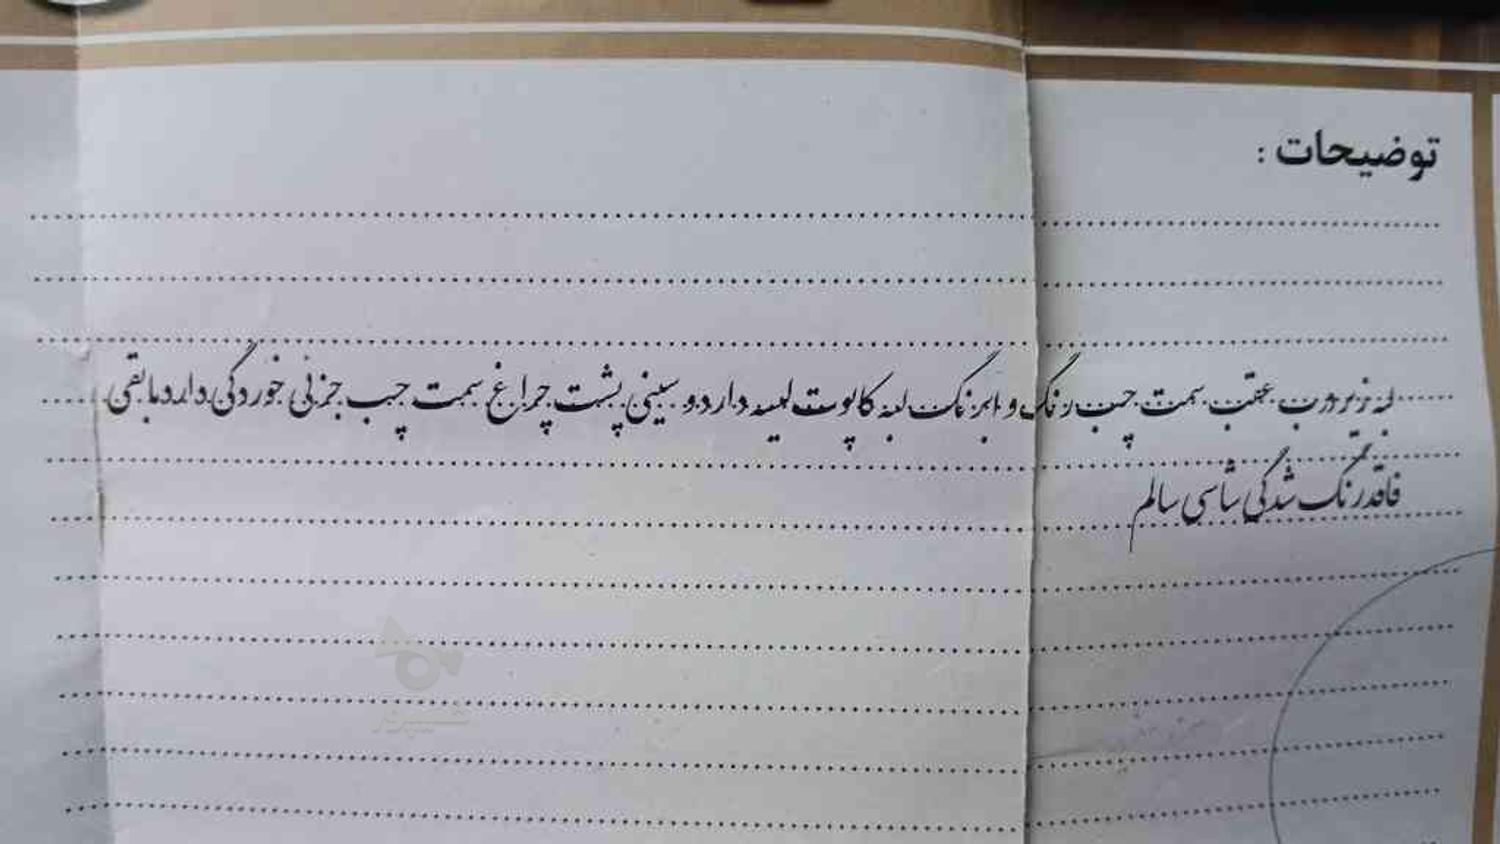 توضیحات :
لبه زیر درب عقب سمت چپ رنگ و ابرنگ لبه کاپوت لیسه دارد و سینی پشت چراغ سمت چپ جزئی خوردگی دارد مابقی
فاقد رنگ شدگی شاسی سالم